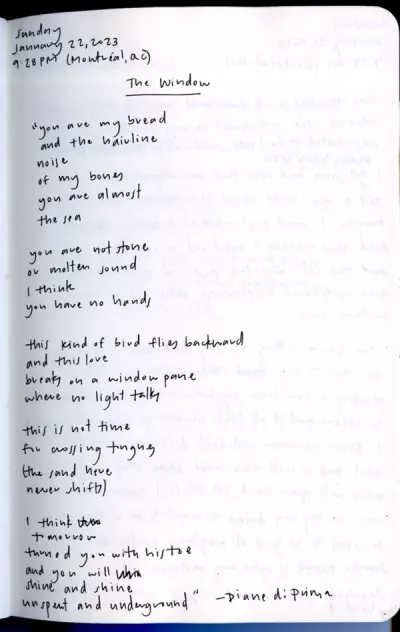 Sunday
January 22, 2023
9:28 PM (Montréal, QC)
The Window
"you are my bread
and the hairline
noise
of my bones
you are almost
the sea
you are not stone
or molten sound
I think
you have no hands
this kind of bird flies backward
and this love
breaks on a window pane
where no light talks
this is not time
for crossing tongues
(the sand here
never shifts)
I think
tomorrow
turned you with his toe
and you will
shine and shine
unspent and underground" —Diane di Prima